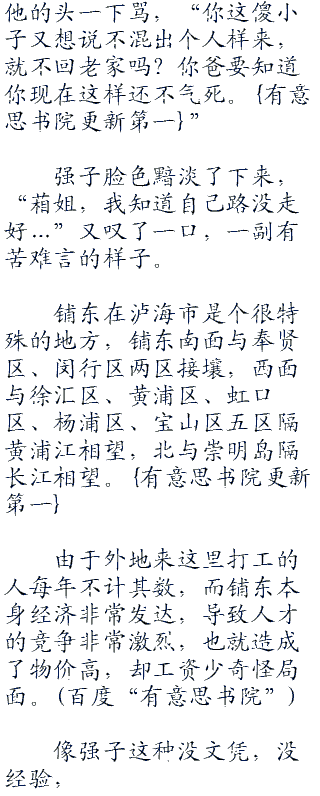 他的头一下骂，“你这傻小
子又想说不混出个人样来，
就不回老家吗？你爸要知道
你现在这样还不气死。{有意
思书院更新第一}”
强子脸色黯淡了下来，
“萳姐，我知道自己路没走
好…”又叹了一口，一副有
苦难言的样子。
铺东在泸海市是个很特
殊的地方，铺东南面与奉贤
区、闵行区两区接壤，西面
与徐汇区、黄浦区、虹口
区、杨浦区、宝山区五区隔
黄浦江相望，北与崇明岛隔
长江相望。{有意思书院更新
第一}
由于外地来这里打工的
人每年不计其数，而铺东本
身经济非常发达，导致人才
的竞争非常激烈，也就造成
了物价高，却工资少奇怪局
面。(百度“有意思书院”)
像强子这种没文凭，没
经验，